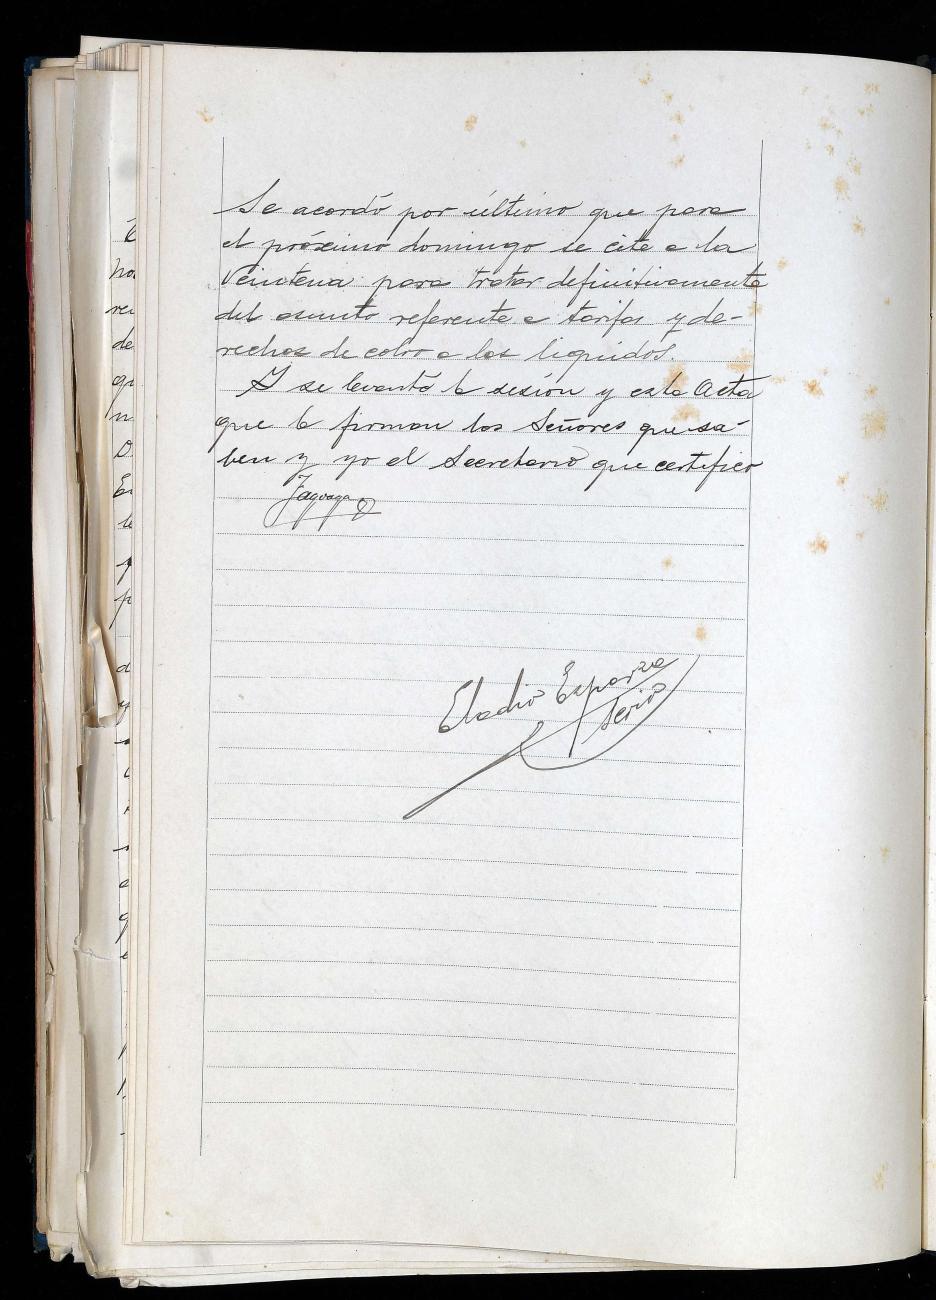 Se acordó por último que para
el próximo domingo se cite a la
Veintena para tratar definitivamente
del asunto referente a tarifas y de-
rechos de cobro a los liquidos.
Y se levantó la sesión y esta Acta
que la firman los Señores que sa-
ben y yo el Secretario que certifico
Eladio Esparza
Serio